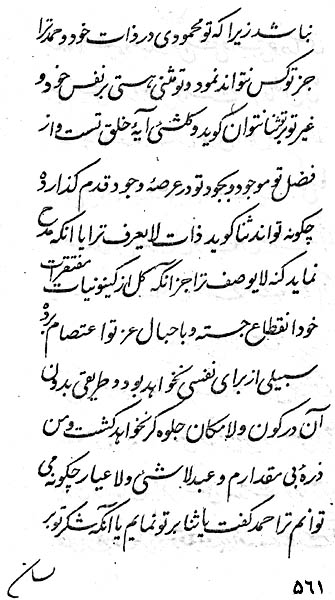 نباشد زیرا که تو محمودی در ذات خود و حمد ترا
جز تو کس نتواند نمود و تو مثنی هستی بر نفس خود و
غیر تو بر تو ثنا نتوان گوید و کلشئی آیهٔ خلق تست و از
فضل تو موجود و بجود تو در عرصهٔ وجود قدم گذارده
چگونه تواند ثنا گوید ذات لا یعرف ترا یا آنکه مدح
نماید کنه لا یوصف ترا جز آنکه کل از کینونیات مفتقرات
خود انقطاع جسته و باحبال عز تو اعتصام برده
سبیلی از برای نفسی نخواهد بود و طریقی بدون
آن در کون و لا مکان جلوه گر نخواهد گشت و من
ذرهٔ بی مقدارم و عبد لا شئی و لا عیار چگونه می
توانم ترا حمد گفت یا ثنا بر تو نمایم یا آنکه شکر تو بر
لسان
۵۶۱